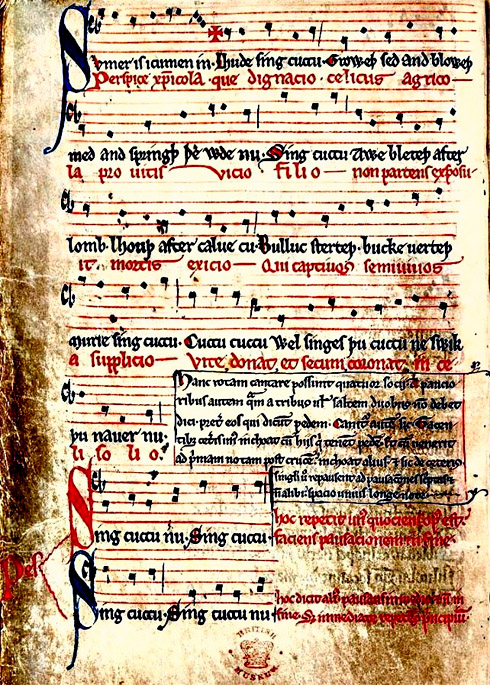 Sumer is icumen in. Lhude sing cuccu. Groweþ sed and bloweþ
Perspice xp̄icola que dignacio celicus agrico
med and springþ þe wde nu. Sing cuccu Awe bleteþ after
la pro uitis vicio filio non parcens exposu
lomb. lhouþ after calue cu. Bulluc sterteþ. bucke uerteþ
it mortis exicio Qui captiuos semiuiuos
murie sing cuccu. Cuccu cuccu Wel singes þu cuccu ne swik
a supplicio Vite donat et secum coronat in ce
þu nauer nu.
li solio.
Hanc rotam cantare possunt quatuor socij. A paucio
ribus autem quam a tribus uel saltem duobus non debet
dici. preter eos qui dicunt pedem. Canitur autem sic. Tacen
tibus ceteris unus inchoat cum hijs qui tenent pedem. Et cum uenerit
ad primam notam post crucem. inchoat alius. et sic de ceteris.
singuli uero repausent ad pausaciones scriptas et
non alibi. spacio unius longe note.
Pes
Sing cuccu nu. Sing cuccu.
hoc repetit unus quociens opus est.
faciens pausacionem in fine.
Sing cuccu. Sing cuccu nu
hoc dicit alius pausans in medio et non in
fine. Set immediate repetens principium.
BRITISH
MUSEUM